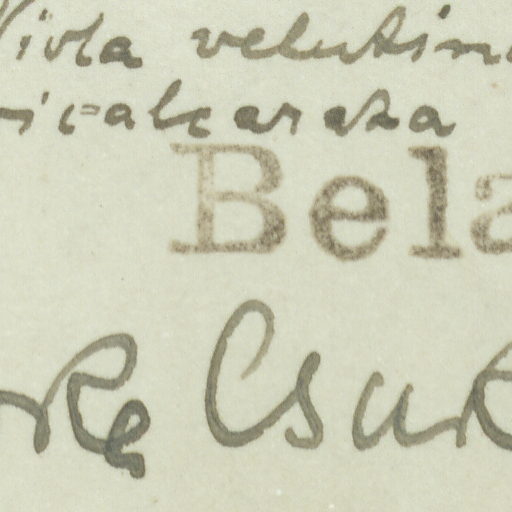 Viola velutina
icalcarata
Bela
Csuk